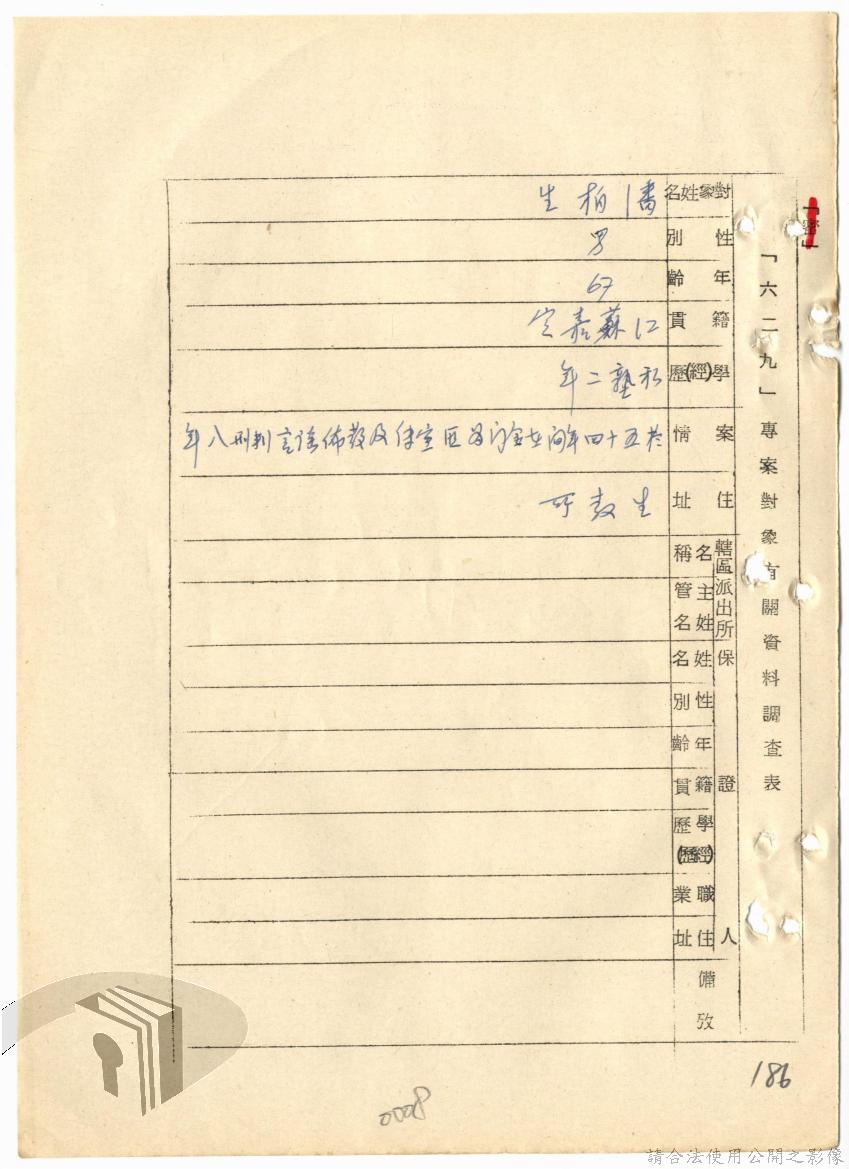 「密」
「六二九」專案對象有關資料調查表
對象姓名 潘柏生
性別 男
年齡 67
籍貫 江蘇嘉定
學(經)歷 私塾二年
案情 於五十四年間在金门為匪宣传及散佈谣言判刑八年
住址 生教所
轄區派出所
名稱
主管姓名
保證人
姓名
性別
年齡
籍貫
學(經)歷
職業
住址
備攷
186
0008
請合法使用公開之影像